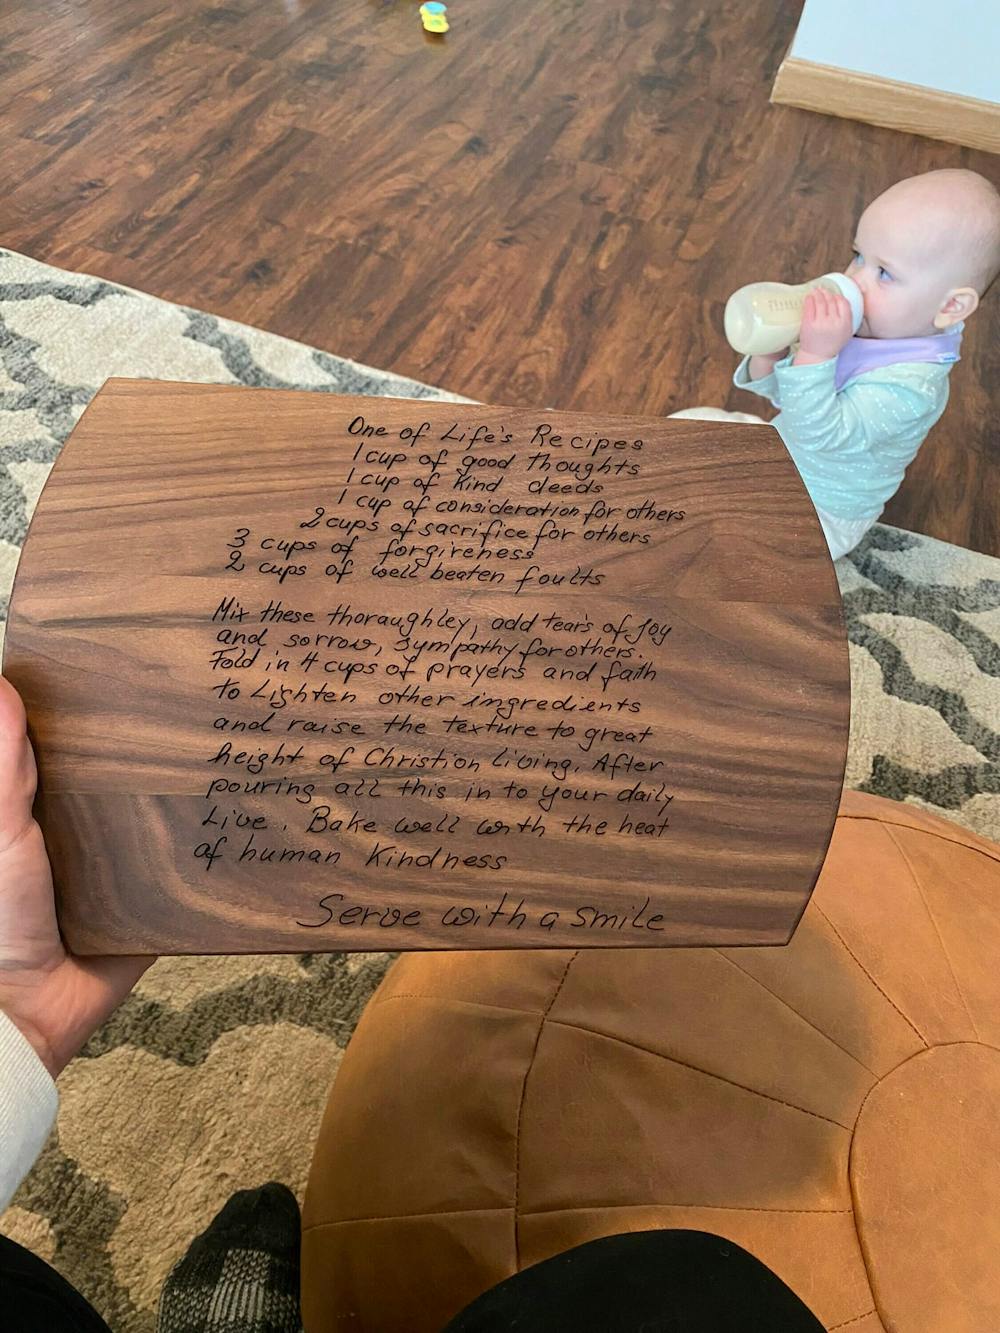 One of Life's Recipes
1 cup of good thoughts
1 cup of Kind deeds
1 cup of consideration for others
2 cups of sacrifice for others
3 cups of forgireness
2 cups of well beaten foults
Mix these thoraughley, add tears of Joy
and sorrow, sympathy for others.
Fold in 4 cups of prayers and faith
to Lighten other ingredients
and raise the texture to great
height of Christion living. After
pouring all this in to your daily
Live. Bake well with the heat
of human Kindness
Serve with a smile